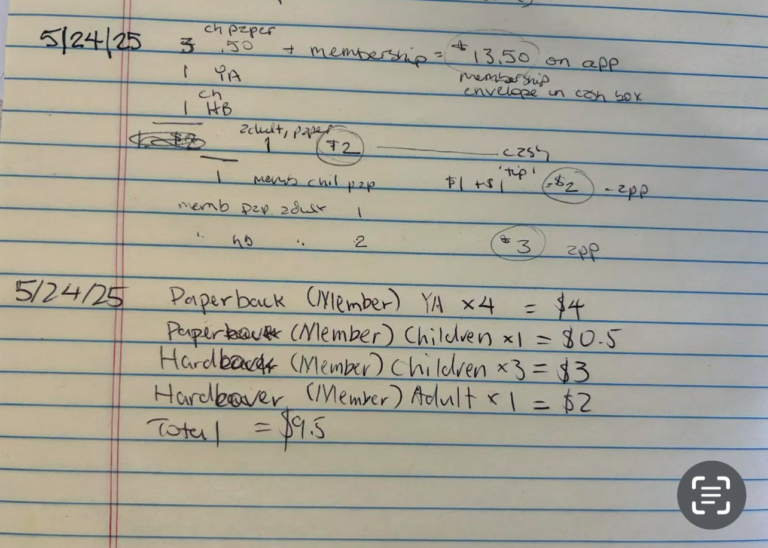 ch paper
5/24/25 3 .50 + membership = $13.50 on app
1 YA membership
envelope in cash box
ch
1 HB
adult, paper
1 $2 cash
'tip'
1 memb chil pap $1 + $1 = $2 - app
memb pap adult 1
" hb " 2 $3 app
5/24/25 Paperback (Member) YA ×4 = $4
Paperback (Member) Children ×1 = $0.5
Hardback (Member) Children ×3 = $3
Hardcover (Member) Adult ×1 = $2
Total = $9.5